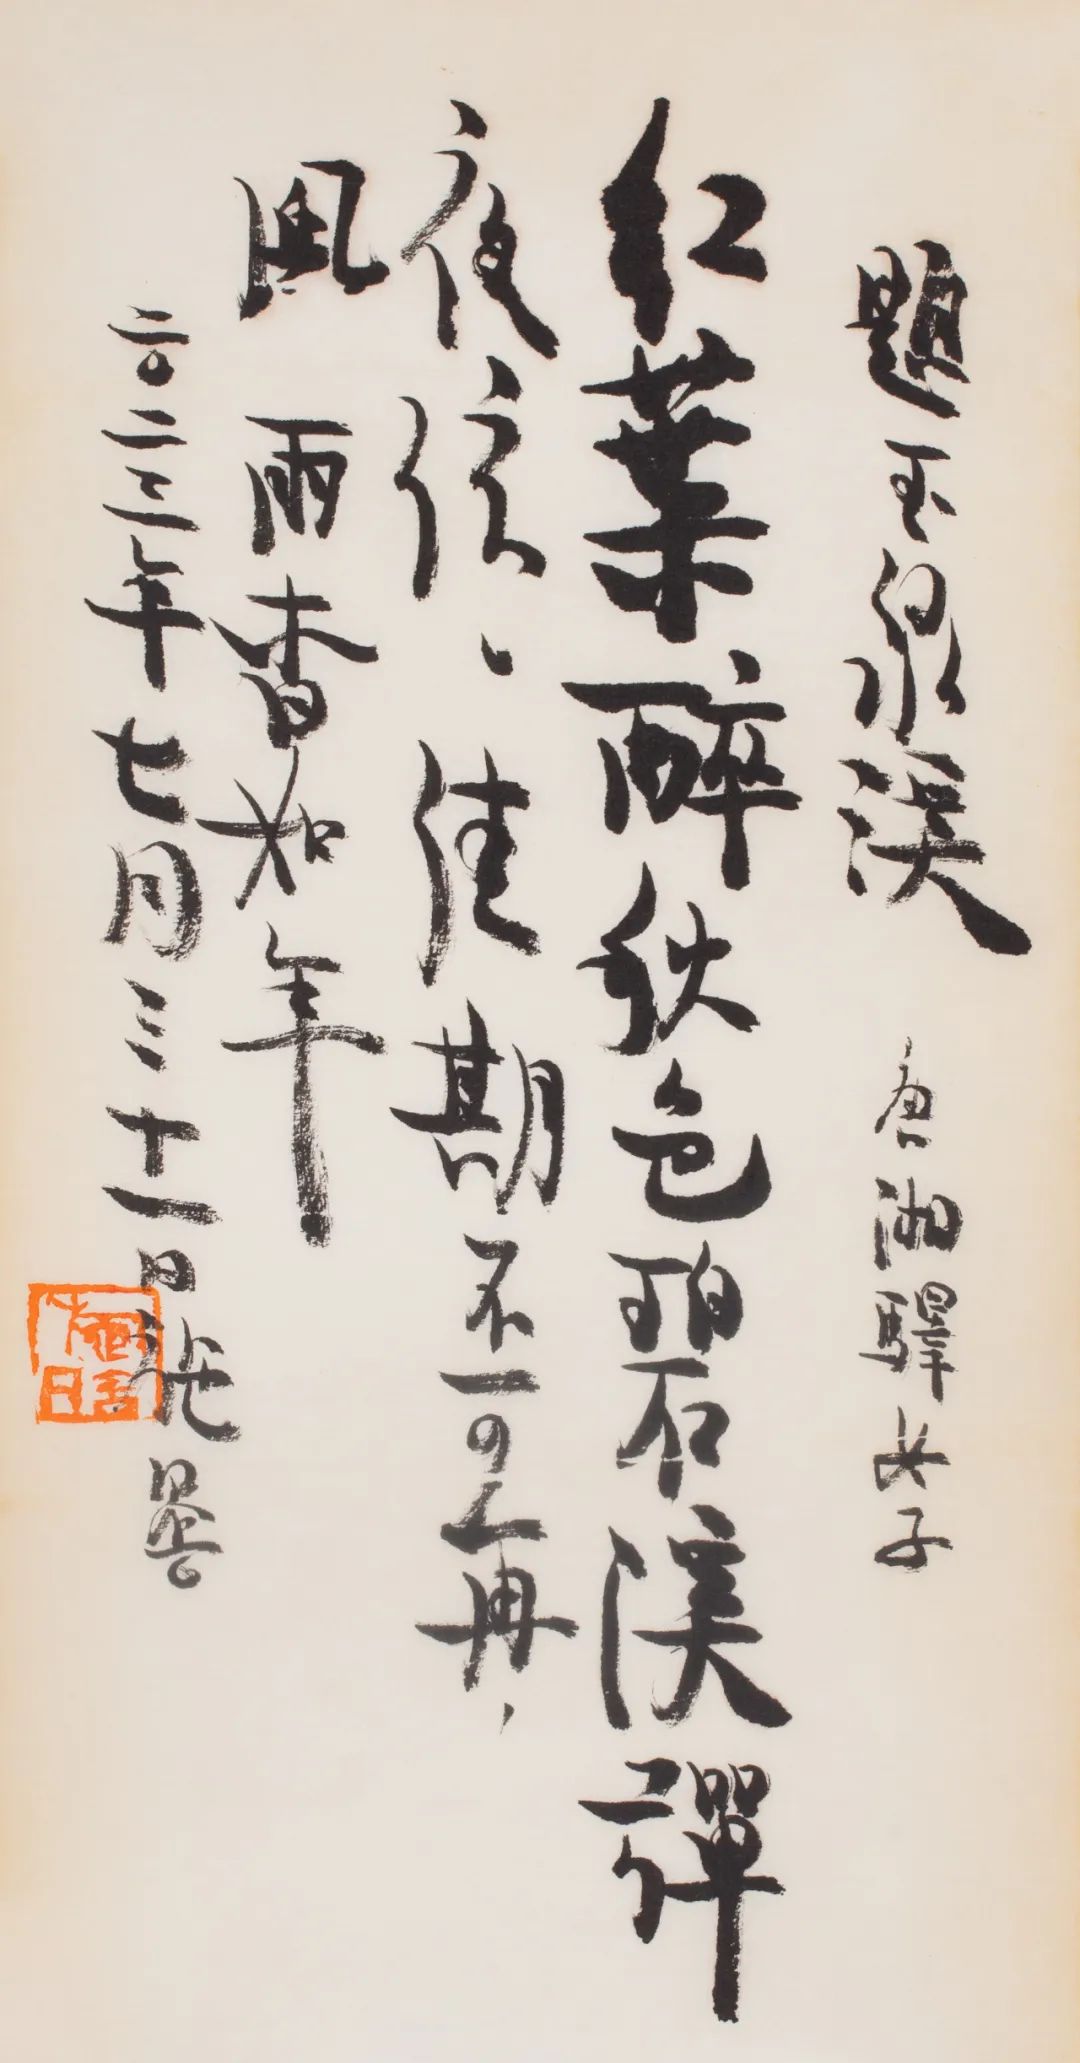 題玉泉溪 唐湘驛女子
紅葉醉秋色碧溪彈
夜弦、佳期不可再，
風雨杳如年
二〇二三年七月三十一日